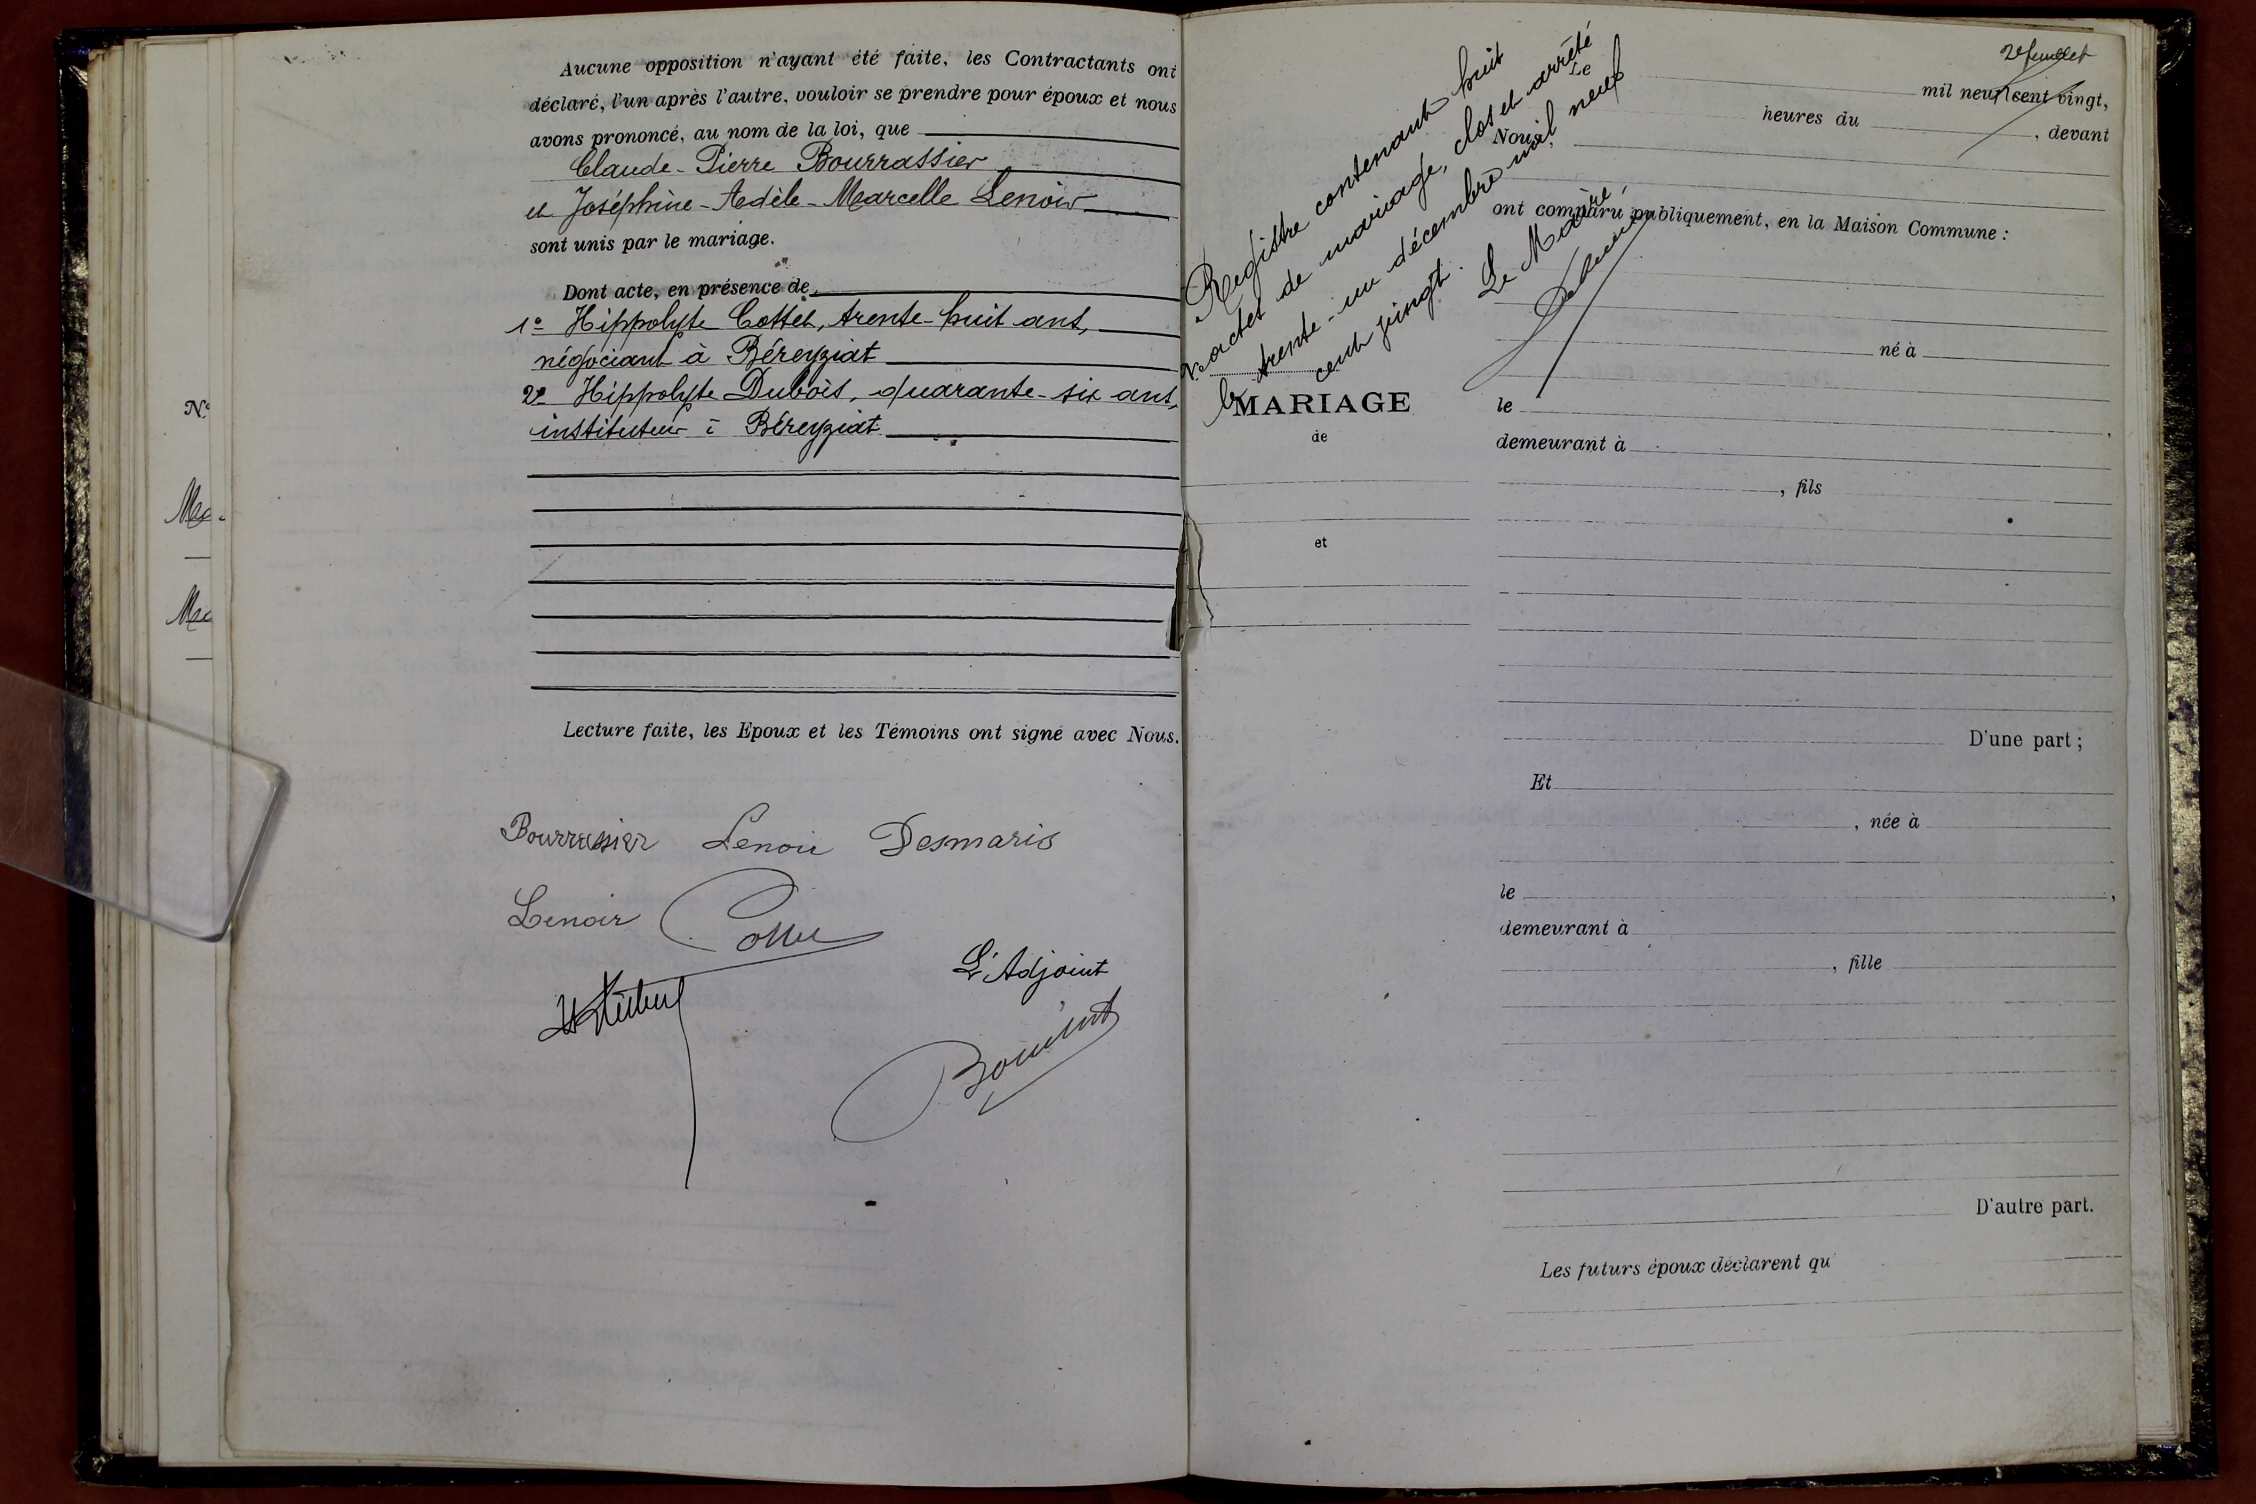 N°
Aucune opposition n'ayant été faite, les Contractants ont
déclaré, l'un après l'autre, vouloir se prendre pour époux et nous
avons prononcé, au nom de la loi, que
Claude-Pierre Bourrassier
et Joséphine-Adèle-Marcelle Lenoir
sont unis par le mariage.
Dont acte, en présence de
1° Hippolyte Cottet, trente-huit ans,
négociant à Béreyziat
2° Hippolyte Dubois, quarante-six ans,
instituteur à Béreyziat
Lecture faite, les Epoux et les Témoins ont signé avec Nous.
Bourrassier Lenoir Desmaris
Lenoir Cottet
L'Adjoint
Registre contenant huit
actes de mariage, clos et arrêté
le trente-un décembre mil neuf
cent vingt.
Le Maire,
MARIAGE
de
et
2e feuillet
Le
mil neuf cent vingt,
heures du , devant
Nous,
ont comparu publiquement, en la Maison Commune :
né à
le ,
demeurant à
, fils
D'une part ;
Et
, née à
le ,
demeurant à
, fille
D'autre part.
Les futurs époux déclarent qu